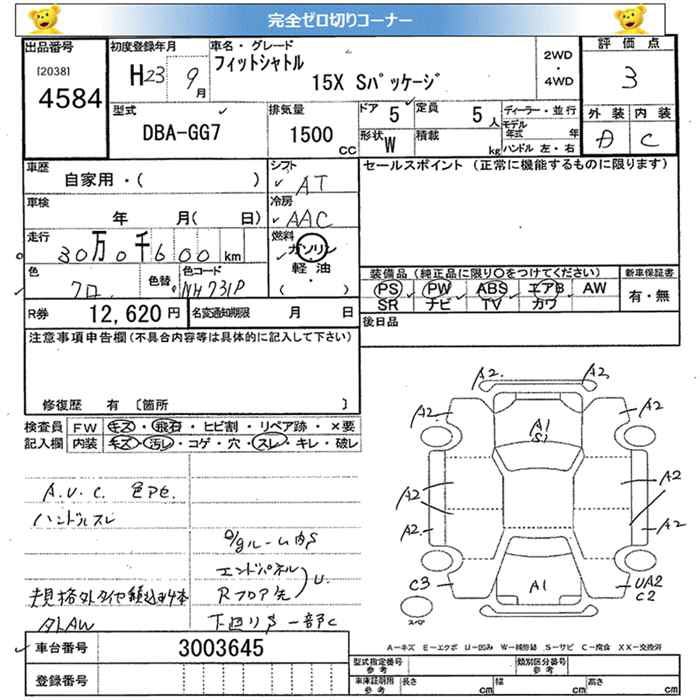 完全ゼロ切りコーナー
出品番号
[2038]
4584
初度登録年月
H23 9月
車名・グレード
フィットシャトル
15X Sパッケージ
2WD
・
4WD
評価点
3
外装 内装
A C
型式
DBA-GG7
排気量
1500
CC
ドア 5
形状 W
定員 5人
積載 kg
ディーラー・並行
モデル年式 年
ハンドル 左・右
車歴
自家用・( )
シフト
AT
車検
年 月( 日)
冷房
AAC
走行
30万0千600 km
燃料
ガソリン
軽油
( ・ )
色
クロ
色替
色コード
NH731P
R券 12,620円
名変通知期限 月 日
セールスポイント (正常に機能するものに限ります)
装備品(純正品に限り〇をつけてください)
新車保証書
PS PW ABS エアB AW
SR ナビ TV カワ
有・無
後日品
注意事項申告欄(不具合内容等は具体的に記入して下さい)
修復歴 有 〔箇所 〕
検査員記入欄
FW キズ・飛石・ヒビ割・リペア跡・×要
内装 キズ・汚レ・コゲ・穴・スレ・キレ・破レ
A.U.C. 色Pモ.
ハンドルスレ
規格外タイヤ積込4本
外AW
O/gルーム内S
エンドパネル
Rフロア先
U.
下廻りS 一部C
A2. A2.
A2. A2
A1
S1
A2 A2
A2 A2
C3
A1
UA2
C2
スペア
A-キズ E-エクボ U-凹み W-補修跡 S-サビ C-腐食 XX-交換済
車台番号 3003645
登録番号
型式指定番号
参考
類別区分番号
参考
車庫証明用
参考
長さ cm
幅 cm
高さ cm